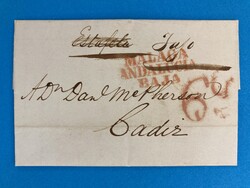 Estafeta
MALAGA
ANDALUCIA
BAJA
A Dn Danl McPherson
6
Cadiz